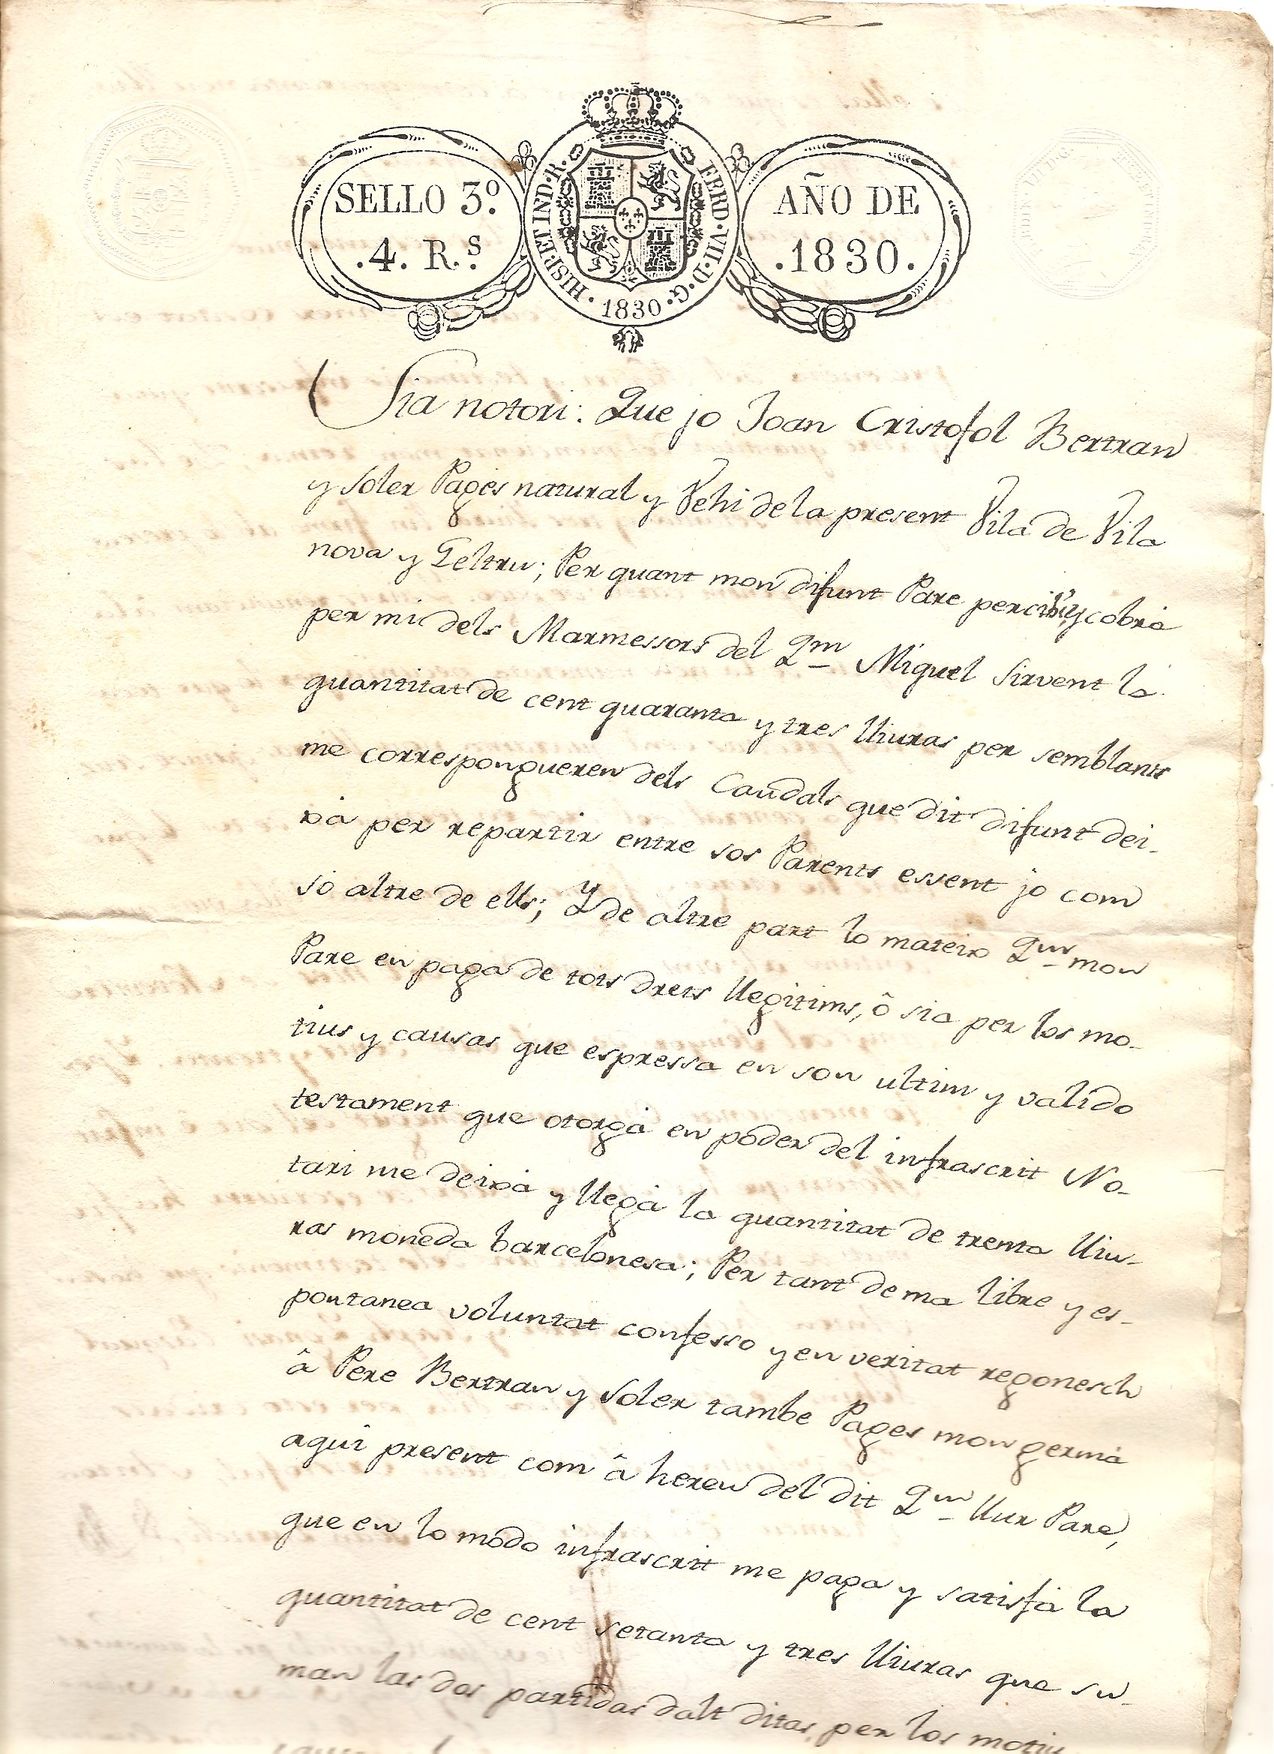 SELLO 3º.
.4. R.S
HISP·ET IND·R· FERD·VII·D·G· 1830
AÑO DE
.1830.
Sia notori: Que jo Joan Cristofol Bertran
y Soler Pagés natural y Vehi de la present Vila de Vila
nova y Geltru; Per quant mon difunt Pare percibí y cobrá
per mi dels Marmessors del Qm Miquel Sirvent la
quantitat de cent quaranta y tres lliuras per semblants
me correspongueren dels Caudals que dit difunt dei-
xá per repartir entre sos Parents essent jo com
só altre de ells; Y de altre part lo mateix Qm mon
Pare en paga de tots drets llegitims, ó sia per los mo-
tius y causas que espressa en son ultim y valido
testament que otorgá en poder del infrascrit No-
tari me deixá y llegá la quantitat de trenta lliu-
ras moneda barcelonesa; Per tant de ma libre y es-
pontanea voluntat confesso y en veritat regonesch
â Pere Bertran y Soler tambe Pages mon germá
aquí present com â hereu del dit Qm llur Pare,
que en lo modo infrascrit me paga y satisfá la
quantitat de cent setanta y tres lliuras que su-
man las dos partidas dalt ditas, per los motius